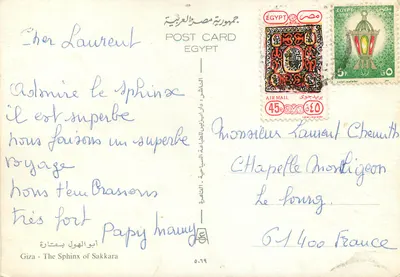 جمهورية مصر العربية
POST CARD
EGYPT
Cher Laurent
Admire le sphinx
il est superbe
nous faisons un superbe
voyage
nous t'embrassons
très fort
Papy Mamy
أبو الهول بسقارة
Giza - The Sphinx of Sakkara
EGYPT مصر
AIR MAIL بريد جوى
45 ٤٥
5 ٥
Monsieur Laurent
CHAPELLE Montligeon
Le bourg
61400 France
٥٠٦٩